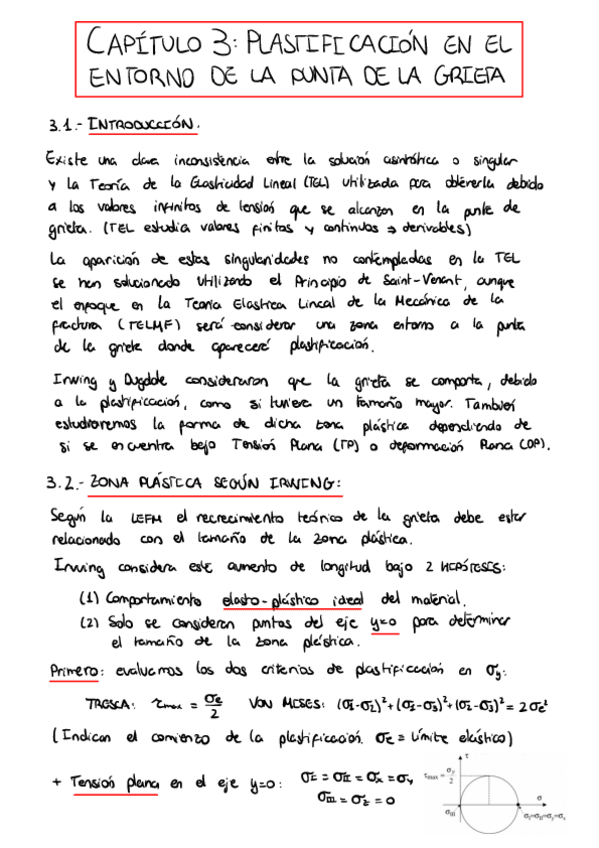 CAPÍTULO 3: PLASTIFICACIÓN EN EL
ENTORNO DE LA PUNTA DE LA GRIETA
3.1.- INTRODUCCIÓN.
Existe una clara inconsistencia entre la solución asintótica o singular
y la Teoría de la Elasticidad Lineal (TEL) utilizada para obtenerla debido
a los valores infinitos de tensión que se alcanzan en la punta de
grieta. (TEL estudia valores finitos y continuos ⇒ derivables)
La aparición de estas singularidades no contempladas en la TEL
se han solucionado utilizando el Principio de Saint-Venant, aunque
el enfoque en la Teoría Elástica Lineal de la Mecánica de la
fractura (TELMF) será considerar una zona entorno a la punta
de la grieta donde aparecerá plastificación.
Irwing y Dugdale consideraron que la grieta se comporta, debido
a la plastificación, como si tuviera un tamaño mayor. También
estudiaremos la forma de dicha zona plástica dependiendo de
si se encuentra bajo Tensión Plana (TP) o deformación Plana (DP).
3.2.- ZONA PLÁSTICA SEGÚN IRWING:
Según la LEFM el recrecimiento teórico de la grieta debe estar
relacionado con el tamaño de la zona plástica.
Irwing considera este aumento de longitud bajo 2 HIPÓTESIS:
(1) Comportamiento elasto-plástico ideal del material.
(2) Solo se consideran puntos del eje y=0 para determinar
el tamaño de la zona plástica.
Primero: evaluamos los dos criterios de plastificación en σy:
TRESCA: τmax = σe/2 VON MISES: (σI-σII)²+(σI-σIII)²+(σII-σIII)² = 2σe²
(Indican el comienzo de la plastificación. σe ≡ límite elástico)
+ Tensión plana en el eje y=0: σI = σII = σx = σy
σIII = σz = 0
τ
τmax = σy/2
σ
σIII
σI=σII=σy=σx